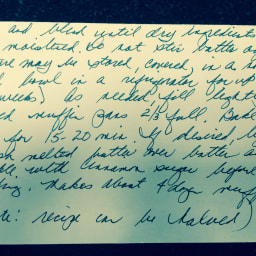 and blend until dry ingredients
moistened. Do not stir batter
may be stored, covered, in a
bowl in a refrigerator for up
weeks) as needed, fill lightly
muffin pans 2/3 full. Bake
for 15-20 min. If desired,
melted butter over batter
with cinnamon sugar before
makes about 4 doz
: recipe can be halved)